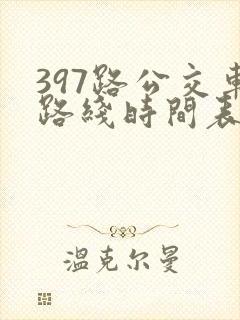 397路公交車
路綫時間表
溫克尔曼